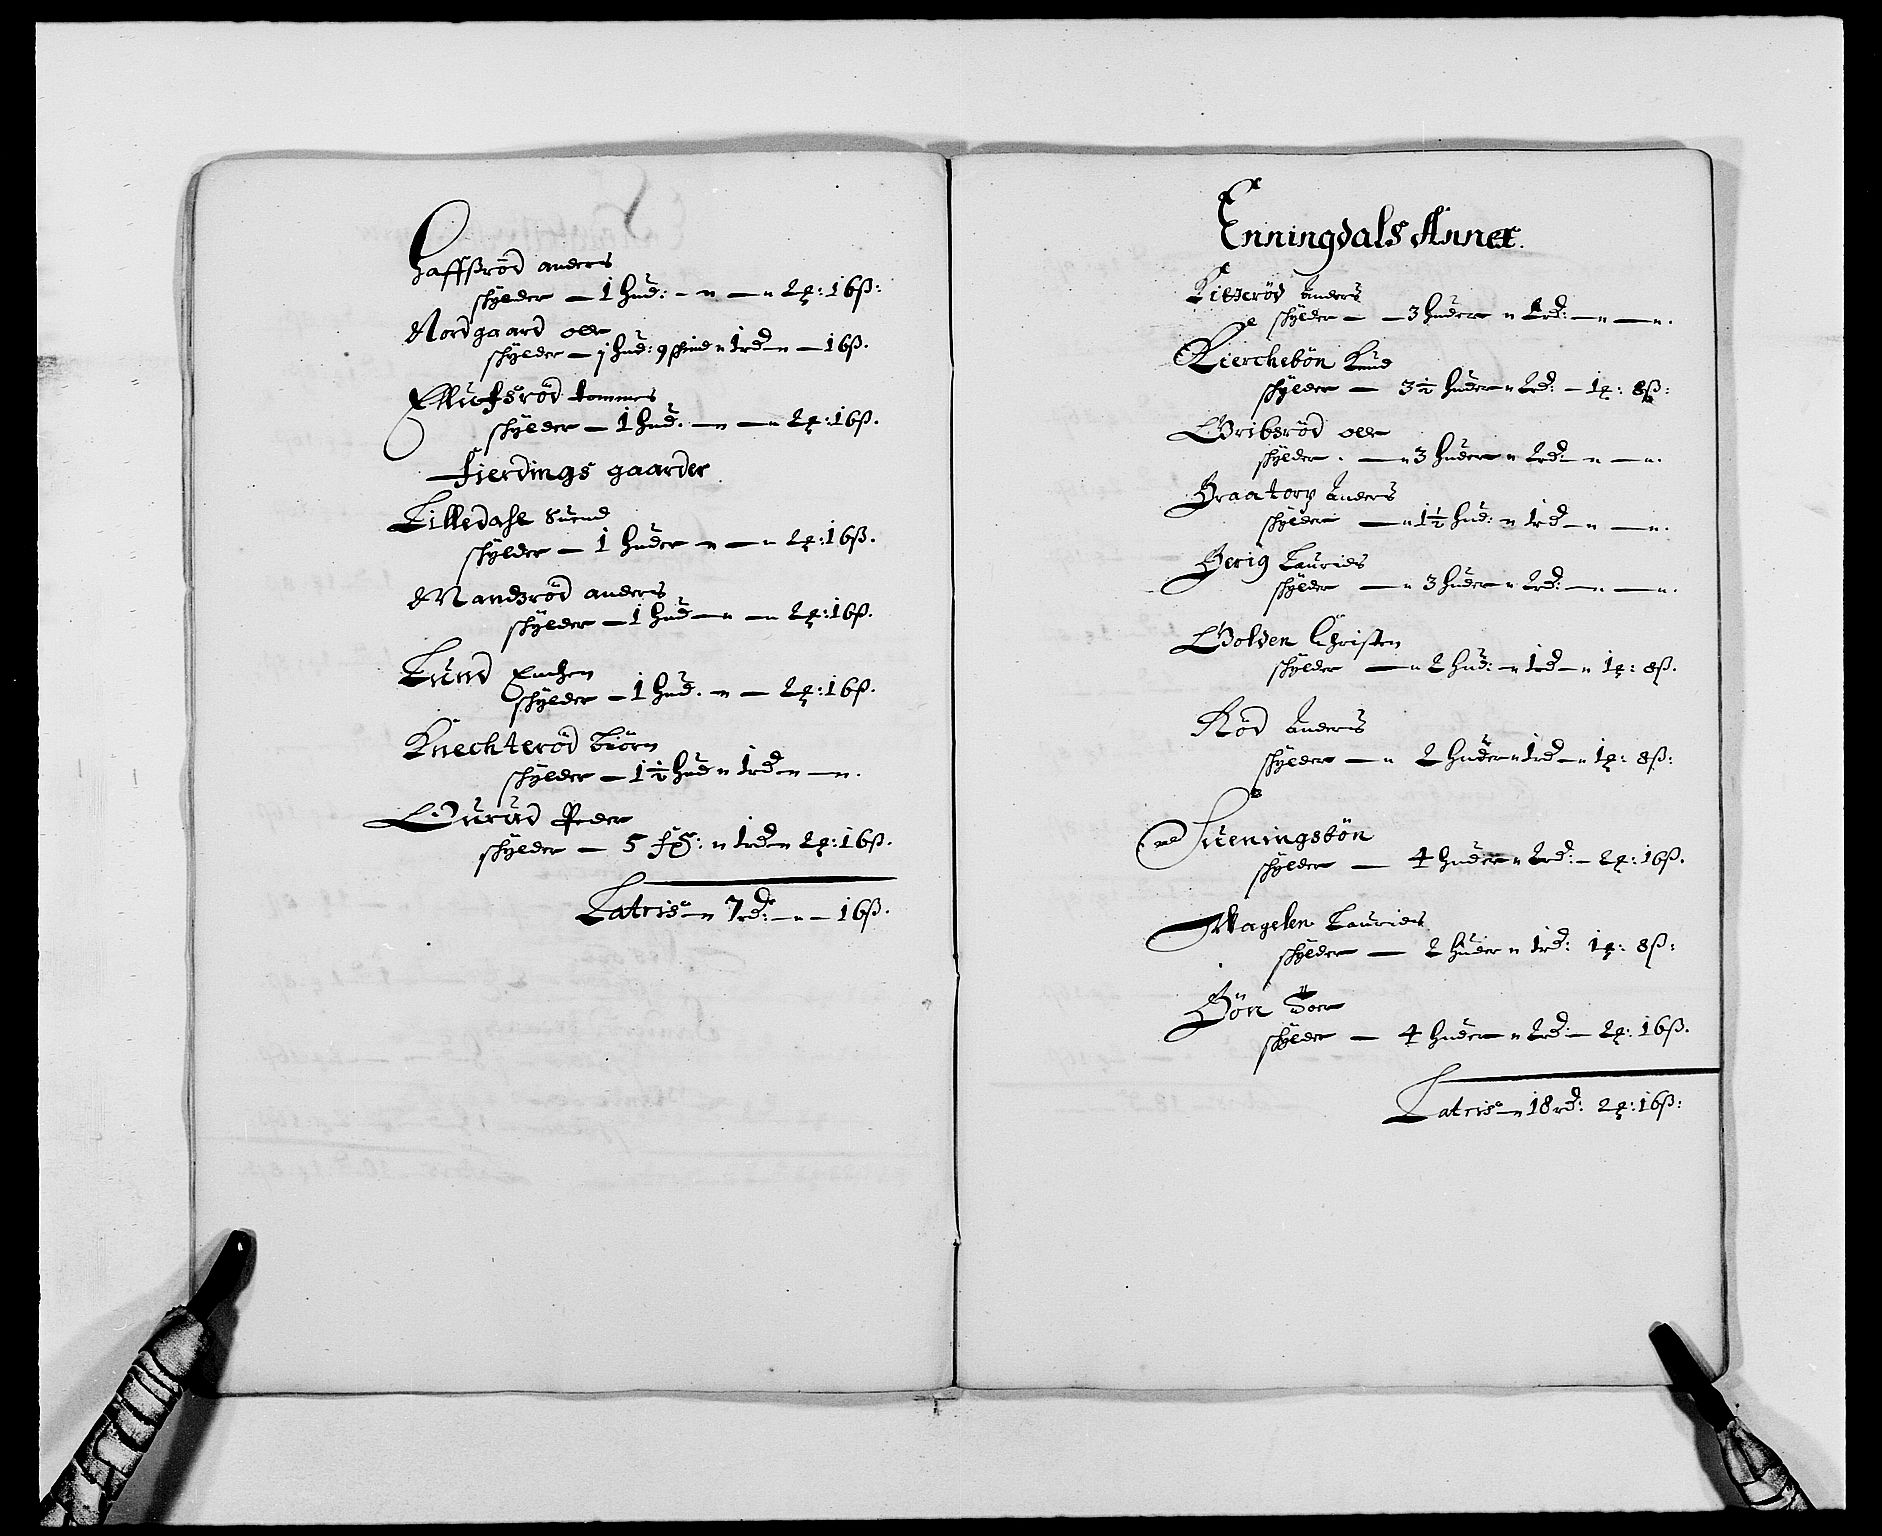 Haffsröd anders
skÿlder — 1 hud: - " — " 2 ꝗ: 16 ß:
Nordgaard olle
skÿlder — 1 hud: 9 skind " 1 rd — " — 16 ß.
Elluefsröd tommes
skÿlder — 1 hud. — " — " 2 ꝗ: 16 ß.
Fierdings gaarder
Lilledahl Suend
skÿlder — 1 huder — " — " 2 ꝗ: 16 ß.
Mansröd anders
skÿlder — 1 hud — " — " 2 ꝗ: 16 ß.
Lund
skÿlder — 1 hud. — " — 2 ꝗ: 16 ß.
Knechteröd biörn
skÿlder — 1½ hud " 1 rd — " — ".
Burud Peder
skÿlder — 5 " 1 rd — " 2 ꝗ: 16 ß.
Latris — " 7 rd: — " — 16 ß.
Enningdals Annex.
Kitzeröd Anders
skÿlder — — 3 huder " 2 rd: — " — ".
Kierchebön Knud
skÿlder — 3½ huder " 2 rd: — 1 ꝗ: 8 ß:
Gribsröd olle
skÿlder — " 3 huder " 2 rd: — " — ".
Braatorp Anders
skÿlder — " 1½ hud: " 1 rd — " — ".
Berig Laurids
skÿlder — " 3 huder " 2 rd: — " — ".
Holden Christen
skÿlder — " 2 hud: — " 1 rd — " 1 ꝗ: 8 ß.
Röd Anders
skÿlder — " 2 huder " 1 rd — " 1 ꝗ: 8 ß:
Sueningsbön
skÿlder — 4 huder " 2 rd: — 2 ꝗ: 16 ß.
Magelen Laurids
skÿlder — 2 huder " 1 rd: 1 ꝗ: 8 ß:
Bön Toer
skÿlder — 4 huder " 2 rd: — 2 ꝗ: 16 ß.
Latris — " 18 rd: 2 ꝗ: 16 ß: